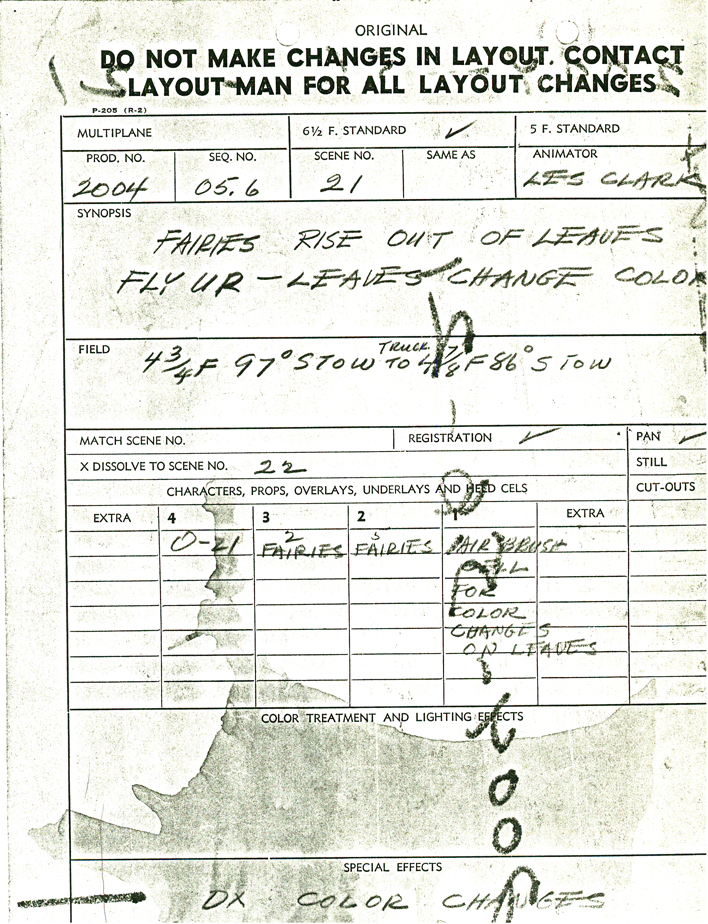 ORIGINAL
DO NOT MAKE CHANGES IN LAYOUT. CONTACT
LAYOUT MAN FOR ALL LAYOUT CHANGES
P-205 (R-2)
MULTIPLANE
6½ F. STANDARD ✓
5 F. STANDARD
PROD. NO.
2004
SEQ. NO.
05.6
SCENE NO.
21
SAME AS
ANIMATOR
LES CLARK
SYNOPSIS
FAIRIES RISE OUT OF LEAVES
FLY UP – LEAVES CHANGE COLOR
FIELD
4 3/4 F 97° S TO W TRUCK TO 4 7/8 F 86° S TO W
MATCH SCENE NO.
REGISTRATION ✓
PAN ✓
X DISSOLVE TO SCENE NO. 22
STILL
CHARACTERS, PROPS, OVERLAYS, UNDERLAYS AND HELD CELS
CUT-OUTS
EXTRA 4 3 2 1 EXTRA
O-21
2 FAIRIES
3 FAIRIES
AIR BRUSH
CELL
FOR
COLOR
CHANGES
ON LEAVES
COLOR TREATMENT AND LIGHTING EFFECTS
SPECIAL EFFECTS
DX COLOR CHANGES